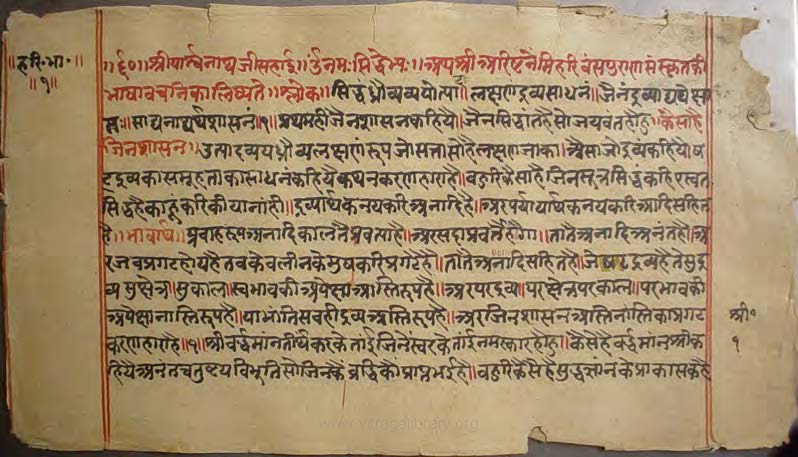 ॥हरि॰भा॰॥
॥१॥
॥६०॥श्रीपार्श्वनाथजीसहाई॥ नमः सिद्धेभ्यः॥अथश्रीअरिष्टनेमिहरिवंसपुराणसंस्कृतकी
भाषावचनिकालिष्यते॥श्लोक॥सिद्धंध्रौव्यव्ययोत्पा॥लक्षणद्रव्यसाधनं॥जैनंद्रव्याद्यपेक्षा
॥साद्यनाद्यर्थशासनं॥१॥प्रथमहीजैनशासनकहियै॥जैनसिद्धांतहैसोजयवंतहोहु॥कैसाहै
जिनशासन॥उत्पादव्ययध्रौव्यलक्षणरूपजोसत्तासोहैलक्षणजाका॥अैसाजोद्रव्यकहियेष
टद्रव्यकासमूहताकासाधनंकहियेकथनकरणहाराहै॥बहुरिकैसाहैजिनसूत्रसिद्धंकहिएस्वत
सिद्धहैकाहूंकरिकीयानांही॥द्रव्यार्थिकनयकरिअनादिहै॥अरपर्यायार्थिकनयकरिआदिसहित
है॥भावार्थ॥प्रवाहरूपअनादिकालतैप्रवर्त्याहै॥अरसदाप्रवर्त्तहैगा॥तातैअनादिअनंतहै॥अ
रजबप्रगटहोयहैतबकेवलीनकेमुषकरिप्रगटैहै॥तातैअनादिसहितहै॥जेषटद्रव्यहैतेसुद्र
व्यसुक्षेत्र॥सुकाल॥स्वभावकीअपेक्षाअस्तिरूपहै॥अरपरद्रव्य॥परक्षेत्रपरकाल॥परभावकी
अपेक्षानास्तिरूपहै॥याभांतिसबहीद्रव्यअस्तिरूपहै॥अरजिनशासनअस्तिनास्तिकाप्रगट
करणहाराहै॥१॥श्रीवर्द्धमानतीर्थंकरकेतांईजिनेस्वरकेतांईनमस्कारहोहु॥कैसेहैवर्द्धमानश्रीक
हियेअनंतचतुष्टयविभूतिसोजिनकैब्रद्धिकौप्राप्तभईहै॥बहुरिकैसेहैसुद्धज्ञानकेप्राकासकहै
श्री॰
१
www.vitragelibrary.org